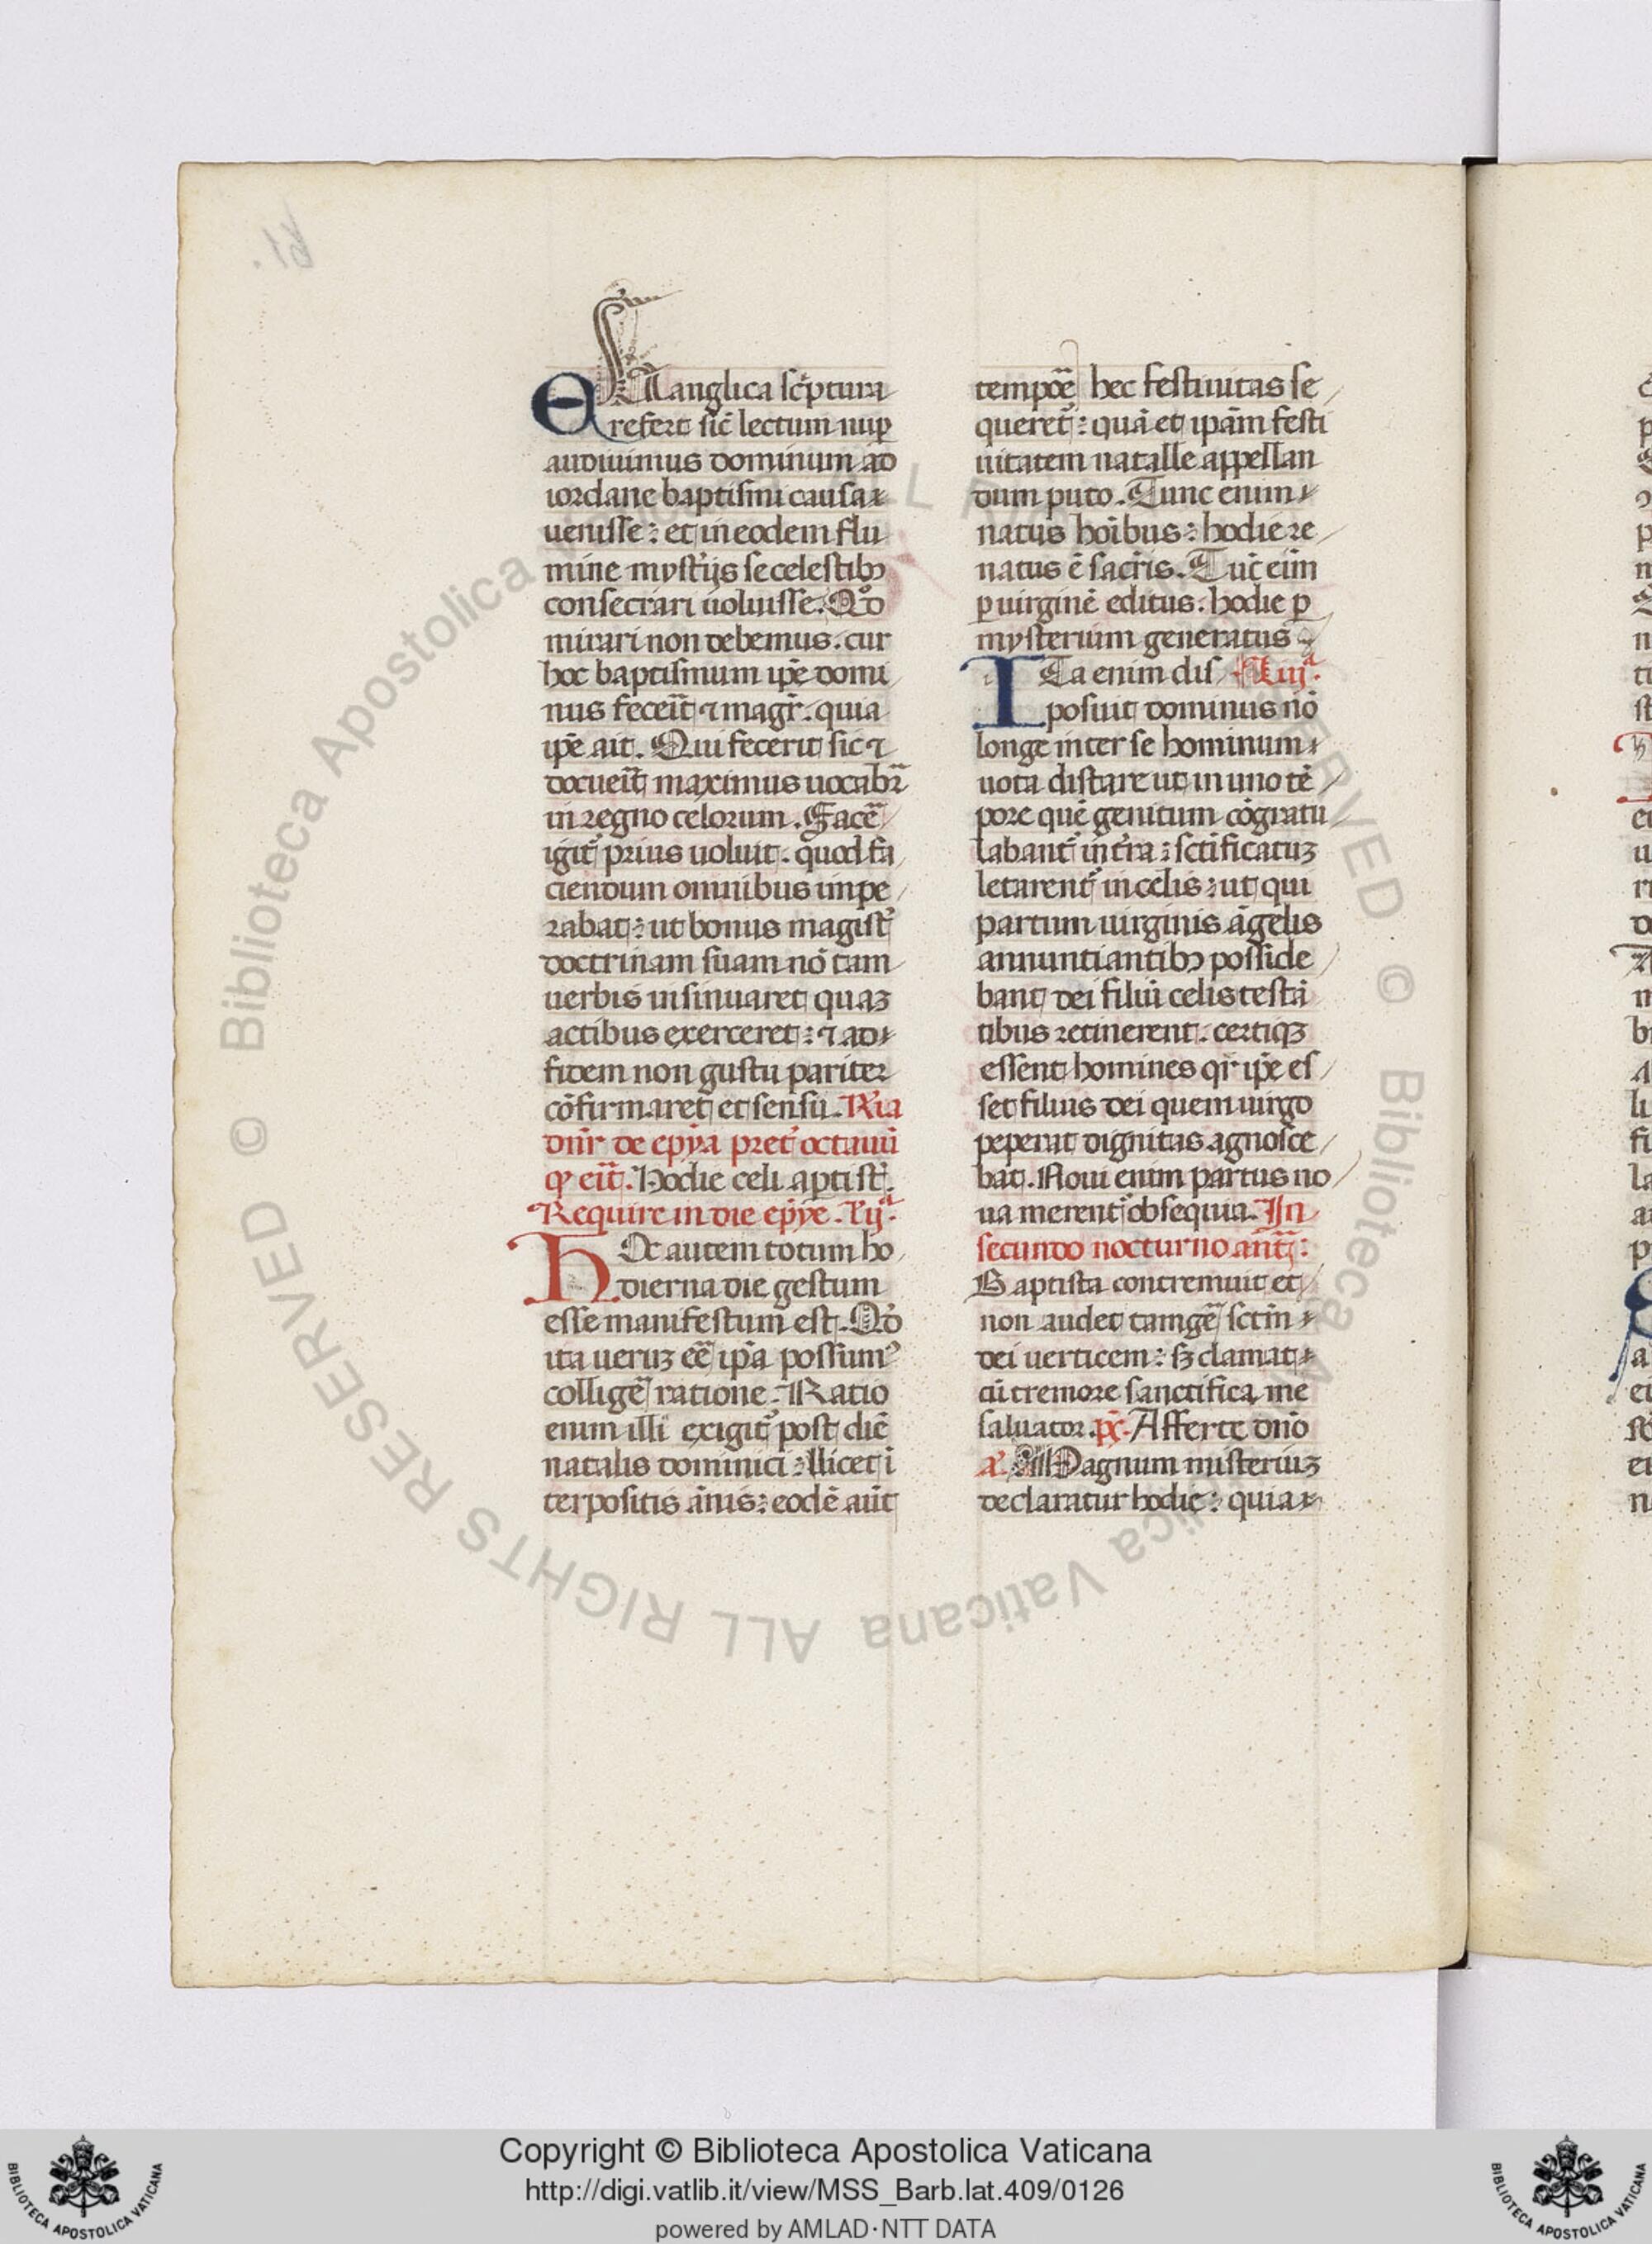 EUanglica sc̃ptura
refert sic̃ lectum nup̱
audiuimus dominum ad
iordane baptismi causa
uenisse: et in eodem flu
mine mysterijs se celestibꝫ
consecrari uoluisse. Qď
mirari non debemus. cur
hoc baptismum ip̃e domi
nus feceĩt ⁊ magr̃. quia
ip̃e ait. Qui fecerit sic ⁊
docueĩt maximus uocabr̃
in regno celorum. Facẽ
igit᷑ prius uoluit. quod fa
ciendum omnibus impe
rabat: ut bonus magist᷑
doctrinam suam nõ tam
uerbis insinuaret quaꝫ
actibus exerceret: ⁊ ad
fidem non gustu pariter
cõfirmaret et sensu. R̃ia
dñr de epyã pret᷑ octauũ
qͥ eĩt. Hodie celi ap̱ti st̃.
Require in die ep̃ye. l'ijᵃ.
HOc autem totum ho
dierna die gestum
esse manifestum est. Qď
ita ueruꝫ eẽ ip̃a possumꝰ
colligẽ ratione. Ratio
enim illi exigit᷑ post diẽ
natalis dominici: llicet ĩ
terpositis ãnis: eodẽ aũt
tempoẽ hec festiuitas se
queret᷑: quã et ip̃am festi
uitatem natalle appellan
dum puto. Tunc enim
natus hoĩbus: hodie re
natus ẽ sac̃ris. Tuc̃ eĩm
p̱ uirginẽ editus. hodie p̱
mysterium generatus
ITa enim dis l'iijᵃ.
posuit dominus nõ
longe inter se hominum
uota distare ut in uno tẽ
pore quẽ genitum cõgratu
labant᷑ in t̃ra: sc̃tificatuꝫ
letarent᷑ in celis: ut qui
partum uirginis ãgelis
annuntiantibꝫ posside
bant dei filiũ celis testã
tibus retinerent. certiqꝫ
essent homines qr̃ ip̃e es
set filius dei quem uirgo
peperat dignitas agnosce
bat. Noui enim partus no
ua merent᷑ obsequia. In
secundo nocturno antᷓ:
Baptista contremuit et
non audet tamgẽ sctm̃
dei uerticem: sꝫ clamat
cũ tremore sanctifica me
saluator. p̃s. Afferte dño
a᷑. Magnum misteriuꝫ
declaratur hodie: quia
Copyright © Biblioteca Apostolica Vaticana
http://digi.vatlib.it/view/MSS_Barb.lat.409/0126
powered by AMLAD·NTT DATA